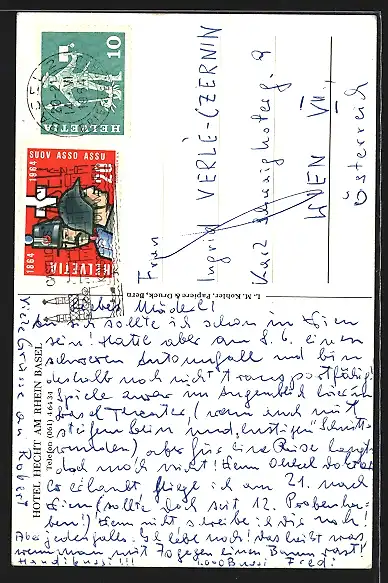 HELVETIA
10
SUOV ASSO ASSU
1864 1964
20
HELVETIA
BASEL
Frau
Ingrid VERLÉ-CZERNIN
Karl Schweighoferg. 9
WIEN VII.
Österreich
L. M. Kohler, Papiere & Druck, Bern
HOTEL HECHT AM RHEIN BASEL
Telefon (061)
Liebes Mäderl!
An sich sollte ich schon in Wien
sein! Hatte aber am 8. 6. einen
schweren Autounfall und bin
deshalb noch nicht transportfähig!
Spiele zwar im Augenblick hier am
Theater (wenn auch mit
steifem Bein und „lustigen" Schnitt-
wunden), aber für eine Reise langt's
doch noch nicht! Wenn Onkel Doktor
es erlaubt fliege ich am 21. nach
Wien (sollte dort seit 12. Proben ha-
ben!) Wenn nicht schreibe ich Dir noch!
Also jedenfalls: Ich lebe noch! Das bleibt was
wenn man mit 70 gegen einen Baum rast!
Handibussi!!! 1000 Bussi Fred!
Viele Grüsse an Robert